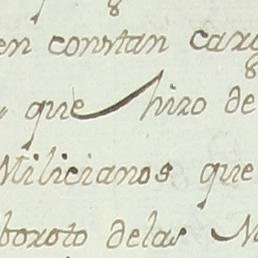 en constan
que hizo de
Milicianos que
boroto delas